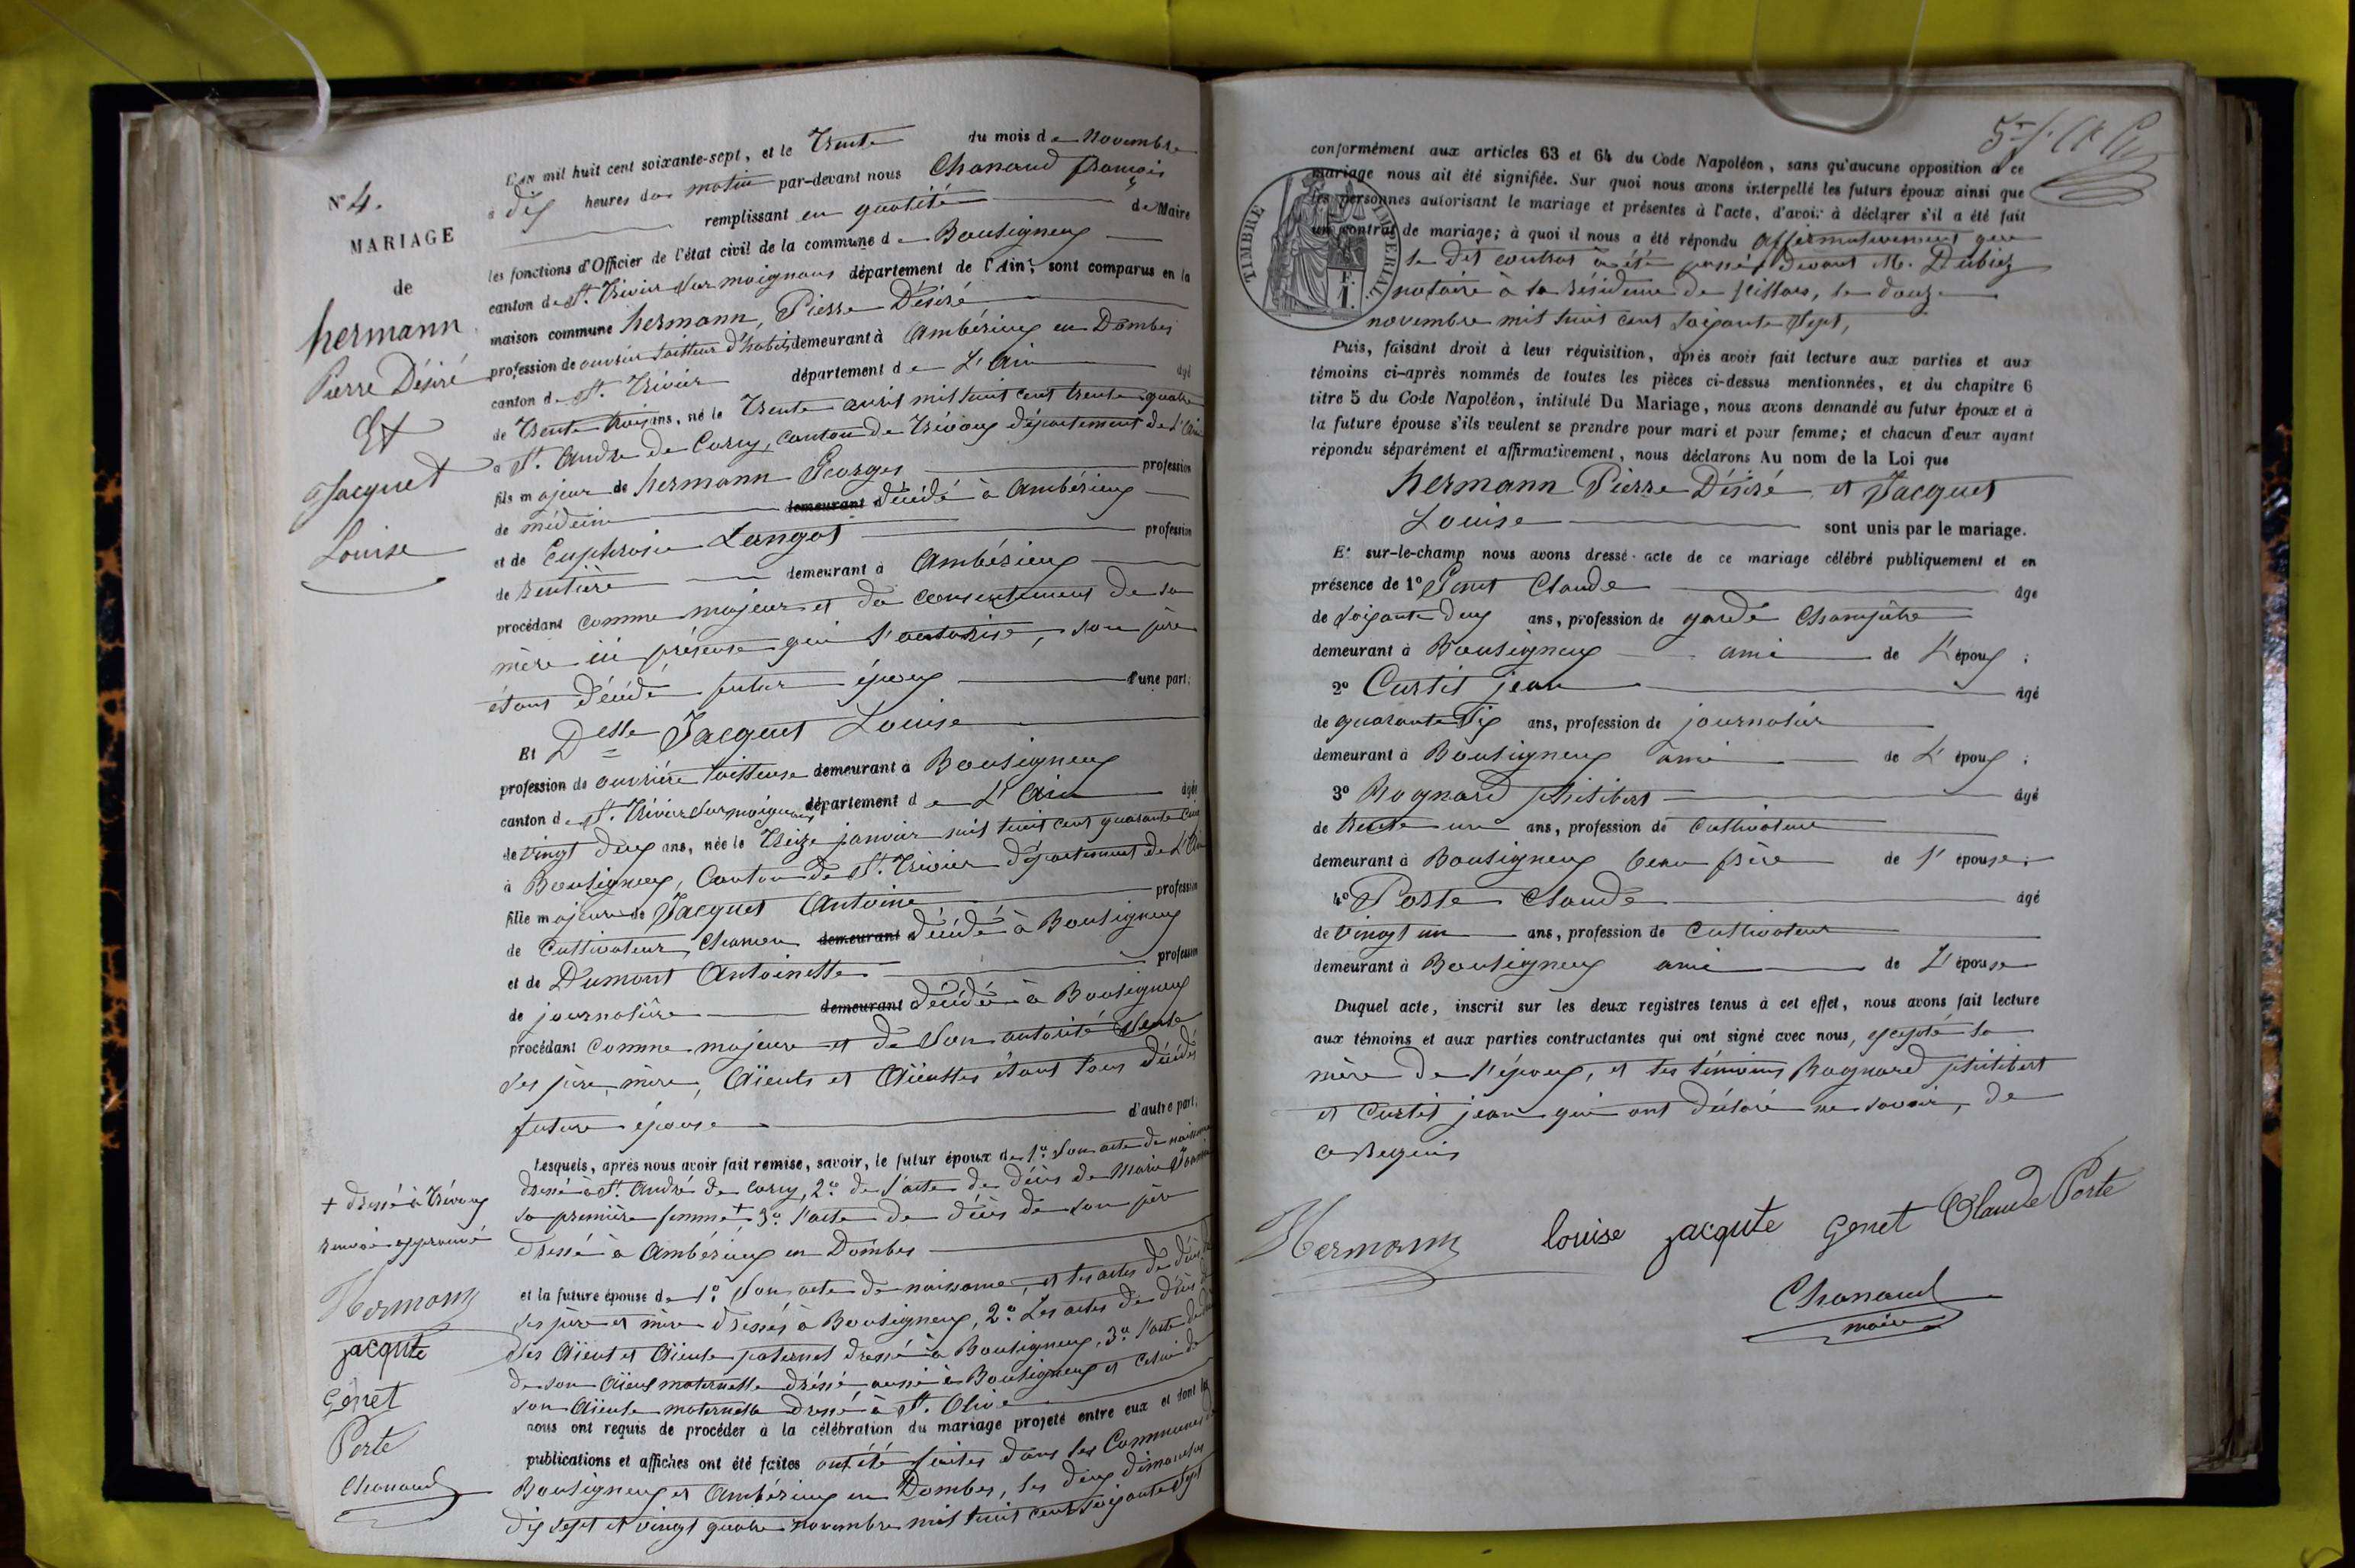 N° 4.
MARIAGE
de
hermann
Pierre Désiré
Et
Jacquet
Louise
L'AN mil huit cent soixante-sept, et le Trente du mois de Novembre
à dix heures du matin par-devant nous Chanaud françois
remplissant en qualité de Maire
les fonctions d'Officier de l'état civil de la commune de Bouligneux
canton de St. Trivier sur moignans département de l'Ain, sont comparus en la
maison commune hermann, Pierre Désiré
profession de ouvrier tailleur d'habits demeurant à Ambérieux en Dombes
canton de St. Trivier département de L'Ain âgé
de Trente trois ans, né le Trente avril mil huit cent trente quatre
à St. André de Corcy, canton de Trévoux département de L'Ain
fils majeur de hermann Georges profession
de médecin demeurant décédé à Ambérieux
et de Euphrosie Langot profession
de rentière demeurant à Ambérieux
procédant comme majeur et du consentement de sa
mère ici présente qui l'autorise, son père
étant décédé futur époux d'une part;
Et Delle Jacquet Louise
profession de ouvrière tailleuse demeurant à Bouligneux
canton de St. Trivier sur moignans département de L'Ain âgée
de vingt deux ans, née le Treize janvier mil huit cent quarante cinq
à Bouligneux, Canton de St. Trivier département de L'Ain
fille majeure de Jacquet Antoine profession
de Cultivateur demeurant décédé à Bouligneux
et de Dumont Antoinette profession
de journalière demeurant décédée à Bouligneux
procédant comme majeure et de son autorité seule
ses père, mère, Aïeuls et Aïeulles étant tous décédés
future épouse d'autre part;
Lesquels, après nous avoir fait remise, savoir, le futur époux de 1° son acte de naissance
dressé à St. André de Corcy, 2° de l'acte de décès de Marie
sa première femme + 3° l'acte de décès de son père
dressé à Ambérieux en Dombes
+ dressé à Trévoux
renvoi approuvé
Hermann
jacqute
Genet
Porte
Chanaud
et la future épouse de 1° son acte de naissance, et les actes de décès de
ses père et mère dressés à Bouligneux, 2° Les actes de décès de
ses Aïeul et Aïeule paternel dressé à Bouligneux, 3° l'acte de décès
de son Aïeul maternelle dréssé aussi à Bouligneux et celui de
son Aïeule maternelle dressé à St. Olive
nous ont requis de procéder à la célébration du mariage projeté entre eux et dont les
publications et affiches ont été faites ont été faites dans les Communes de
Bouligneux et Ambérieux en Dombes, les deux dimanches
dix sept et vingt quatre novembre mil huit cent soixante sept
conformément aux articles 63 et 64 du Code Napoléon, sans qu'aucune opposition à ce
mariage nous ait été signifiée. Sur quoi nous avons interpellé les futurs époux ainsi que
les personnes autorisant le mariage et présentes à l'acte, d'avoir à déclarer s'il a été fait
un contrat de mariage; à quoi il nous a été répondu affirmativement que
le dit contrat a été passé devant M. Dubiez
notaire à la résidence de Villars, le douze
novembre mil huit cent soixante sept,
TIMBRE IMPÉRIAL
Puis, faisant droit à leur réquisition, après avoir fait lecture aux parties et aux
témoins ci-après nommés de toutes les pièces ci-dessus mentionnées, et du chapitre 6
titre 5 du Code Napoléon, intitulé Du Mariage, nous avons demandé au futur époux et à
la future épouse s'ils veulent se prendre pour mari et pour femme; et chacun d'eux ayant
répondu séparément et affirmativement, nous déclarons Au nom de la Loi que
hermann Pierre Désiré et Jacquet
Louise sont unis par le mariage.
Et sur-le-champ nous avons dressé acte de ce mariage célébré publiquement et en
présence de 1° Genet Claude âgé
de soixante deux ans, profession de garde Champêtre
demeurant à Bouligneux ami de L'époux;
2° Curtit jean âgé
de quarante six ans, profession de journalier
demeurant à Bouligneux ami de L'époux;
3° Rognard philibert âgé
de trente un ans, profession de Cultivateur
demeurant à Bouligneux beau frère de l'épouse;
4° Porte Claude âgé
de vingt un ans, profession de Cultivateur
demeurant à Bouligneux ami de L'épouse
Duquel acte, inscrit sur les deux registres tenus à cet effet, nous avons fait lecture
aux témoins et aux parties contractantes qui ont signé avec nous, excepté la
mère de l'époux, et les témoins Rognard philibert
et Curtit jean qui ont déclaré ne savoir, de
ce requis
Hermann louise jacqute Genet Claude Porte
Chanaud
maire